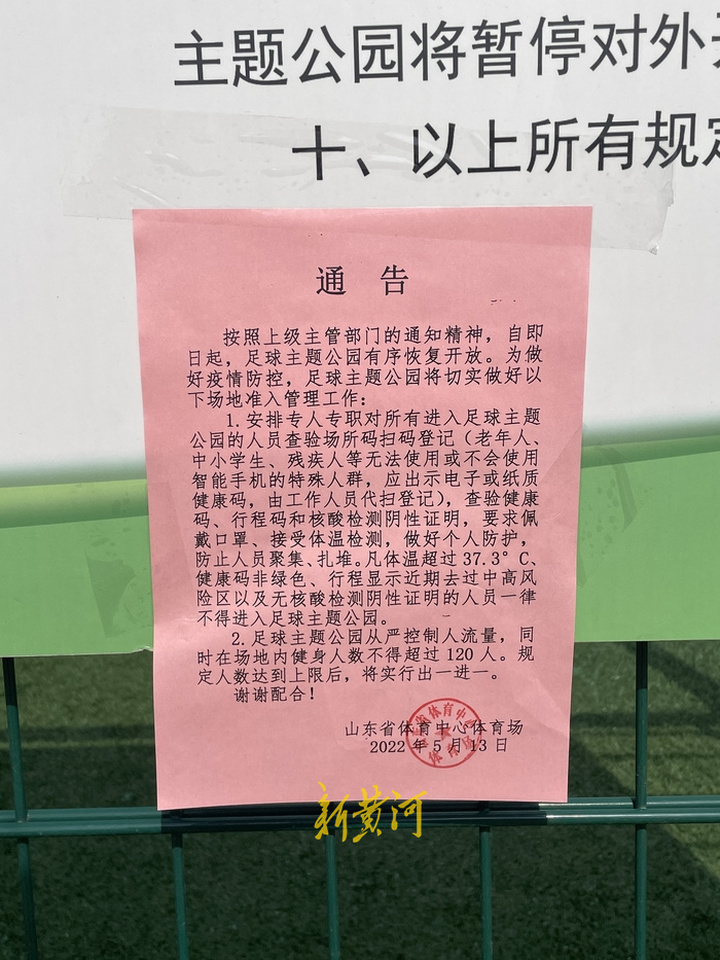 主题公园将暂停对外
十、以上所有规定
通 告
按照上级主管部门的通知精神，自即
日起，足球主题公园有序恢复开放。为做
好疫情防控，足球主题公园将切实做好以
下场地准入管理工作：
1.安排专人专职对所有进入足球主题
公园的人员查验场所码扫码登记（老年人、
中小学生、残疾人等无法使用或不会使用
智能手机的特殊人群，应出示电子或纸质
健康码，由工作人员代扫登记），查验健康
码、行程码和核酸检测阴性证明，要求佩
戴口罩、接受体温检测，做好个人防护，
防止人员聚集、扎堆。凡体温超过37.3°C、
健康码非绿色、行程显示近期去过中高风
险区以及无核酸检测阴性证明的人员一律
不得进入足球主题公园。
2.足球主题公园从严控制人流量，同
时在场地内健身人数不得超过120人。规
定人数达到上限后，将实行出一进一。
谢谢配合！
山东省体育中心体育场
2022年5月13日
新黄河